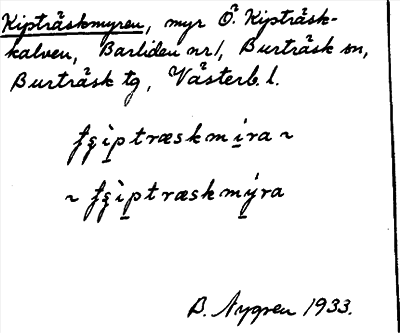 Kipträskmyren, myr Ö. Kipträsk-
kalven, Barliden nr 1, Burträsk sn,
Burträsk tg, Västerb. l.
ʃʂi̱ptræskmi̱ra ~
~ ʃʂi̱ptræskmy̱ra
B. Nygren 1933.